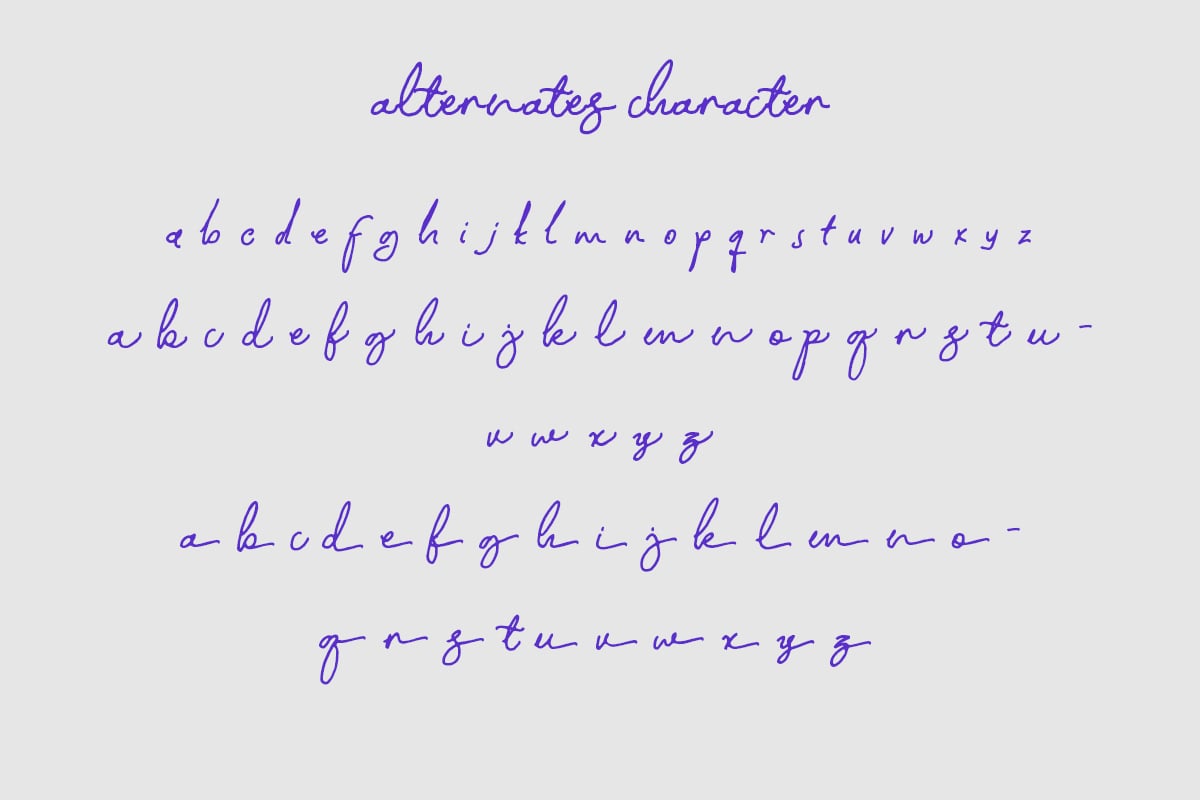 alternates character
a b c d e f g h i j k l m n o p q r s t u v w x y z
a b c d e f g h i j k l m n o p q r s t u -
v w x y z
a b c d e f g h i j k l m n o -
q r s t u v w x y z